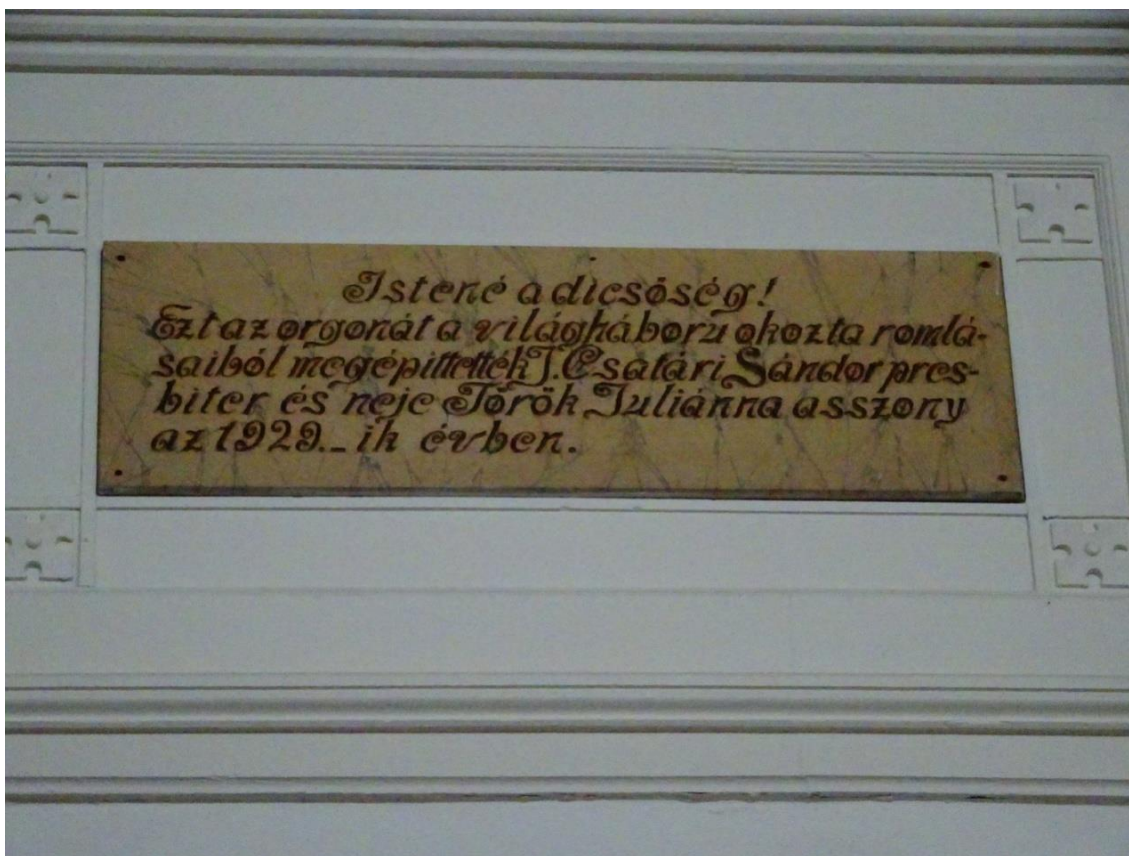 Istené a dicsőség!
Ezt az orgonát a világháboru okozta romlá-
saiból megépíttették T. Csatári Sándor pres-
biter és neje Török Juliánna asszony
az 1929.-ik évben.